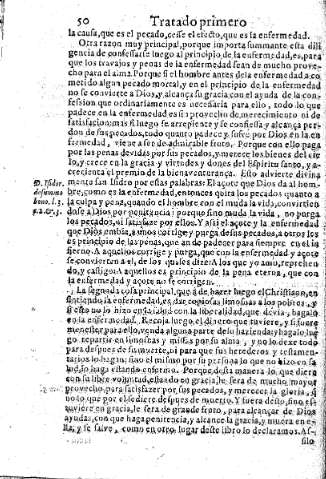 50 Tratado primero
la causa, que es el pecado, cesse el efecto, que es la enfermedad.
Otra razon muy principal, porque importa summamente esta dili
gencia de confessarse luego al principio de la enfermedad, es, para
que los travajos y penas de la enfermedad sean de mucho prove-
cho para el alma. Porque si el hombre antes de la enfermedad a co-
metido algun pecado mortal, y en el principio de la enfermedad
no se convierte a Dios, y alcança su gracia con el ayuda de la con-
fession que ordinariamente es necessaria para ello, todo lo que
padece en la enfermedad es sin provecho, de merecimiento ni de
satisfacion: mas si luego se arrepiente y se confiessa y alcança per-
don de sus pecados, todo quanto padece y sufre por Dios en la en-
fermedad, viene a ser de admirable fruto. Porque con ello paga
por las penas devidas por sus pecados, y merece los bienes del cie-
lo, y crece en la gracia y virtudes y dones del Espiritu santo, y a-
crecienta el premio de la bienaventurança. Esto advierte divina
mente san Isidro por estas palabras: El açote que Dios da al hom-
D. Isidor.
bre, como es la enfermedad, entonces quita los pecados quanto a
de summo
la culpa y pena, quando el hombre con el muda la vida, convirtien
bono. l. 3.
dose a Dios por penitencia: porque sino muda la vida, no purga
los pecados, ni satisfaze por ellos. Y assi el açote y la enfermedad
que Dios embia, a unos corrige y purga de sus pecados, a otros les
es principio de las penas, que an de padecer para siempre en el in
fierno. A aquellos corrige y purga, que con la enfermedad y açote
se convierten a el, de los quales dize: A los que yo amo, reprehen-
do, y castigo. A aquellos es principio de la pena eterna, que con
la enfermedad y açote no se corrigen.
La segunda cosa principal, que à de hazer luego el Christiano, en
sintiendo la enfermedad, es, dar copiosas limosnas a los pobres, y
si esto no lo hizo en salud con la liberalidad, que devia, hagalo
en la enfermedad. Recoja luego el dinero que tuviere, y si fuere
menester, para ello, venda alguna parte de su hazienda, y hagalo lue
go repartir en limosnas y missas por su alma, y no lo dexe todo
para despues de su muerte, ni para que sus herederos y testamen-
tarios lo hagan: sino el mismo por su persona lo que no hizo en sa
lud, lo haga estando enfermo. Porque desta manera lo que diere
con su libre voluntad, estando en gracia, le sera de mucho mayor
provecho, para satisfazer por sus pecados, y merecer la gloria, q
no lo que por el se diere despues de muerto. Y fuera desto, sino es-
tuviere en gracia, le sera de grande fruto, para alcançar de Dios
ayudas, con que haga penitencia, y alcance la gracia, y muera en e-
lla, y se salve, como en otro lugar deste libro lo declaramos. As-
silo